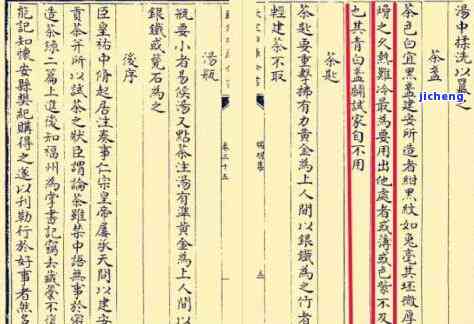 湯中揉洗以羃之
茶盞
茶色白宜黑盞建安所造者紺黑紋如兎毫其坯微厚
熁之久熱難冷最為要用出他處者或薄或色紫不及
也其青白盞鬬試家自不用
茶匙
茶匙要重擊拂有力黃金為上人間以銀鐵為之竹者
輕建茶不取
卷三十五
湯瓶
瓶要小者易候湯又點茶注湯有準黃金為上人間以
銀鐵或甆石為之
後序
臣皇祐中脩起居注奏事仁宗皇帝屢承天問以建安
貢茶并所以試茶之狀臣謂論茶雖禁中語無事於
造茶錄二篇上進後知福州為掌書記竊去藏藁不
能記知懷安縣樊紀購得之遂以刊勒行於好事者
jicheng